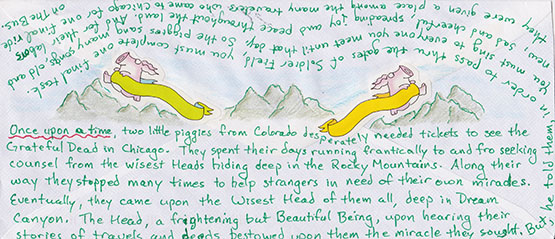 Once upon a time, two little piggies from Colorado desperately needed tickets to see the
Grateful Dead in Chicago. They spent their days running frantically to and fro seeking
counsel from the wisest Heads hiding deep in the Rocky Mountains. Along their
way they stopped many times to help strangers in need of their own miracles.
Eventually, they came upon the Wisest Head of them all, deep in Dream
Canyon. The Head, a frightening but Beautiful Being, upon hearing their
stories of travels and deeds bestowed upon them the miracle they sought. But, he told them,
in order to pass thru the gates of Soldier Field you must complete one final task.
You must sing to everyone you meet until that day, many songs old and
new, sad and cheerful spreading joy and peace throughout the land. So the piggies sang and for their labors
they were given a place among the many travelers who came to Chicago for one final ride
on The Bus.